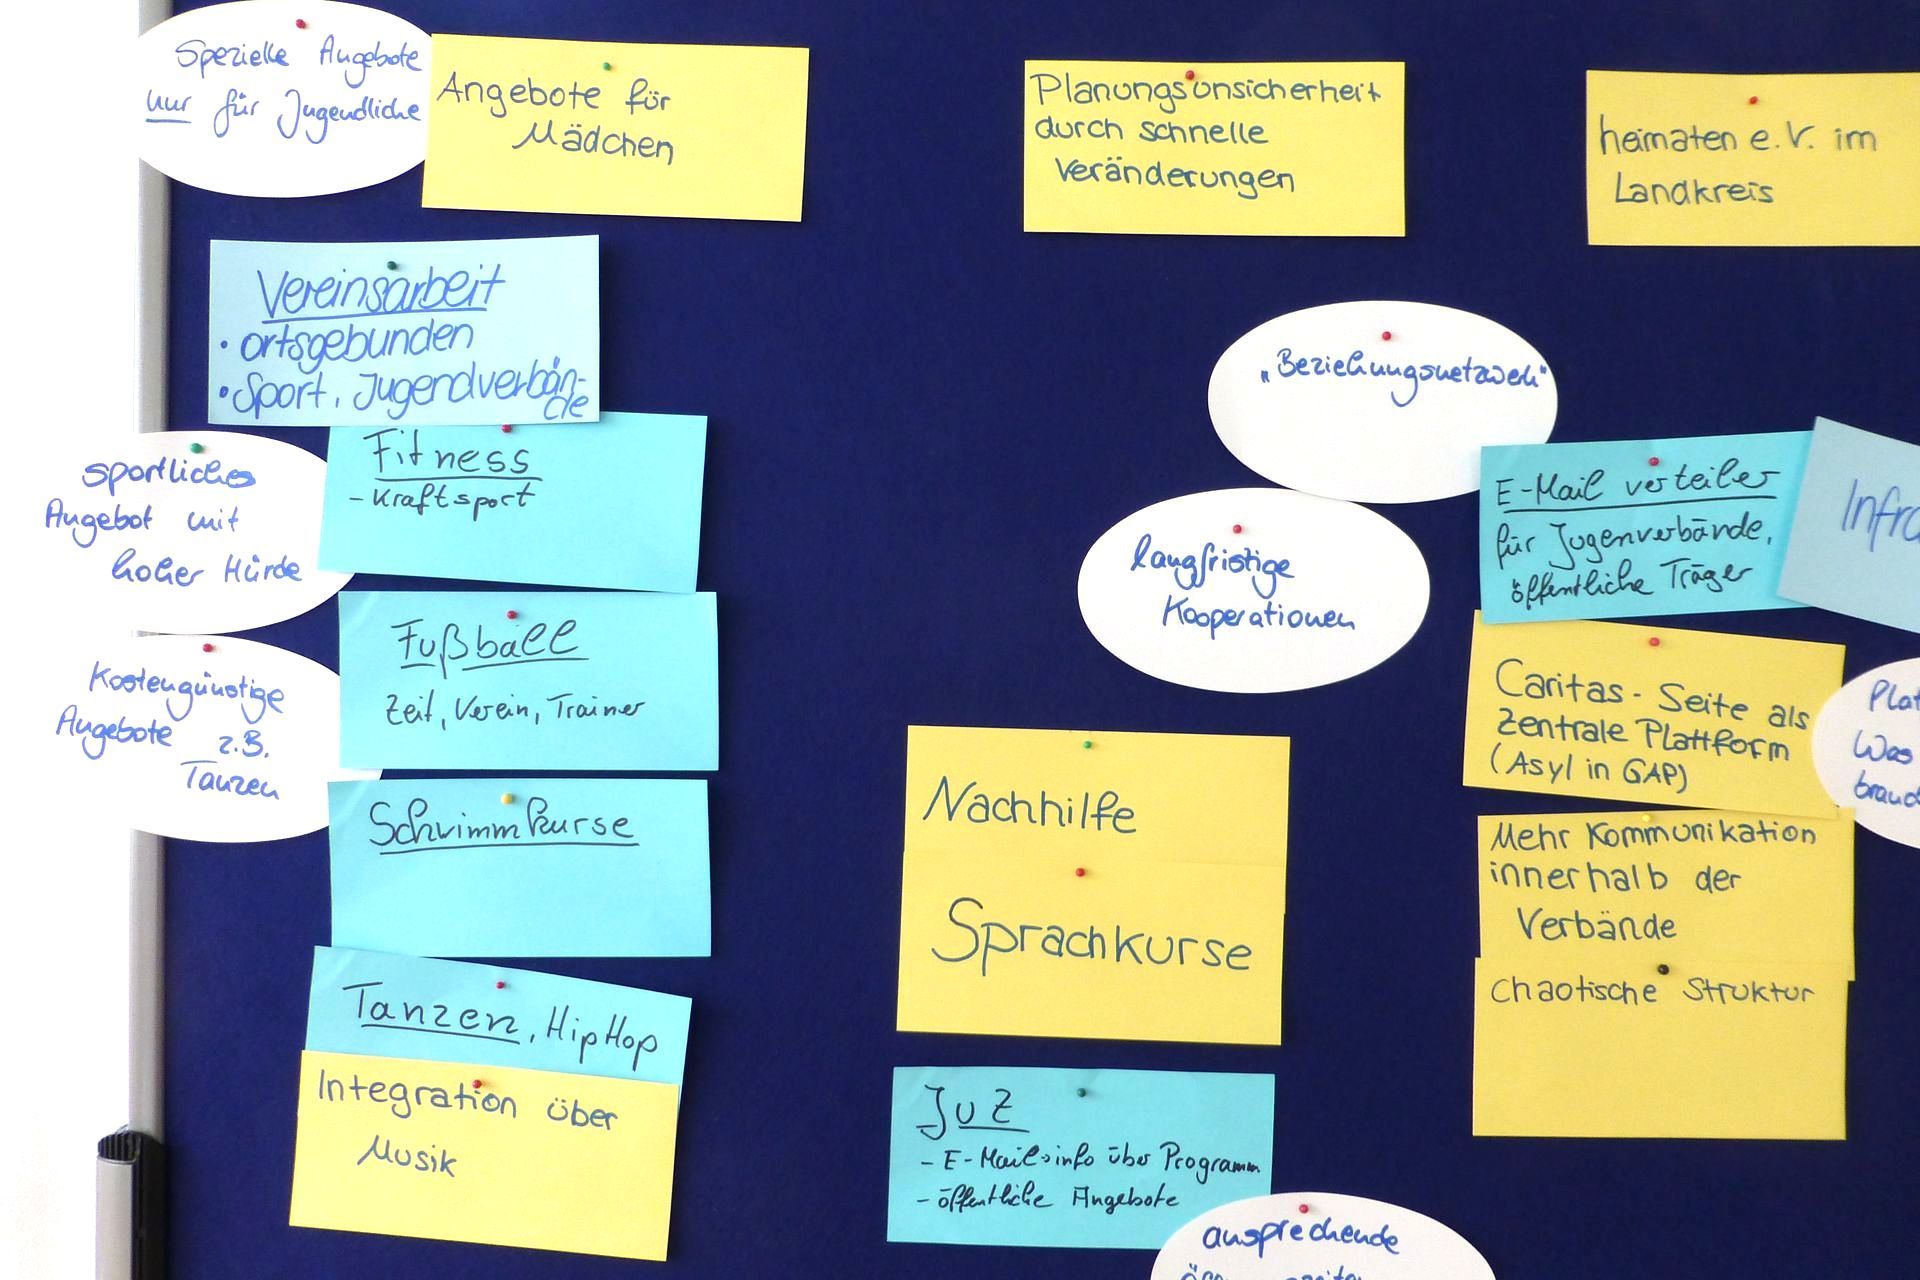 Spezielle Angebote
nur für Jugendliche
Angebote für
Mädchen
Planungsunsicherheit
durch schnelle
Veränderungen
heimaten e.V. im
Landkreis
Vereinsarbeit
• ortsgebunden
• Sport, Jugendverbän-
de
„Beziehungsnetzwerk"
sportliches
Angebot mit
hoher Hürde
Fitness
- Kraftsport
langfristige
Kooperationen
E-Mail verteiler
für Jugenverbände,
öffentliche Träger
Kostengünstige
Angebote z.B.
Tanzen
Fußball
Zeit, Verein, Trainer
Caritas - Seite als
zentrale Plattform
(Asyl in GAP)
Was
Schwimmkurse
Nachhilfe
Sprachkurse
Mehr Kommunikation
innerhalb der
Verbände
chaotische Struktur
Tanzen, HipHop
Integration über
Musik
JuZ
- E-Mail-info über Programm
- öffentliche Angebote
ansprechende